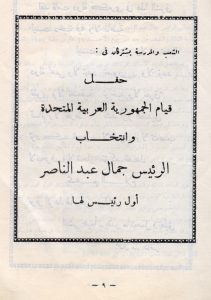 الشعب والمدرسة يشتركان فى :
حفل
قيام الجمهورية العربية المتحدة
وانتخاب
الرئيس جمال عبد الناصر
أول رئيس لها
– ٩ –